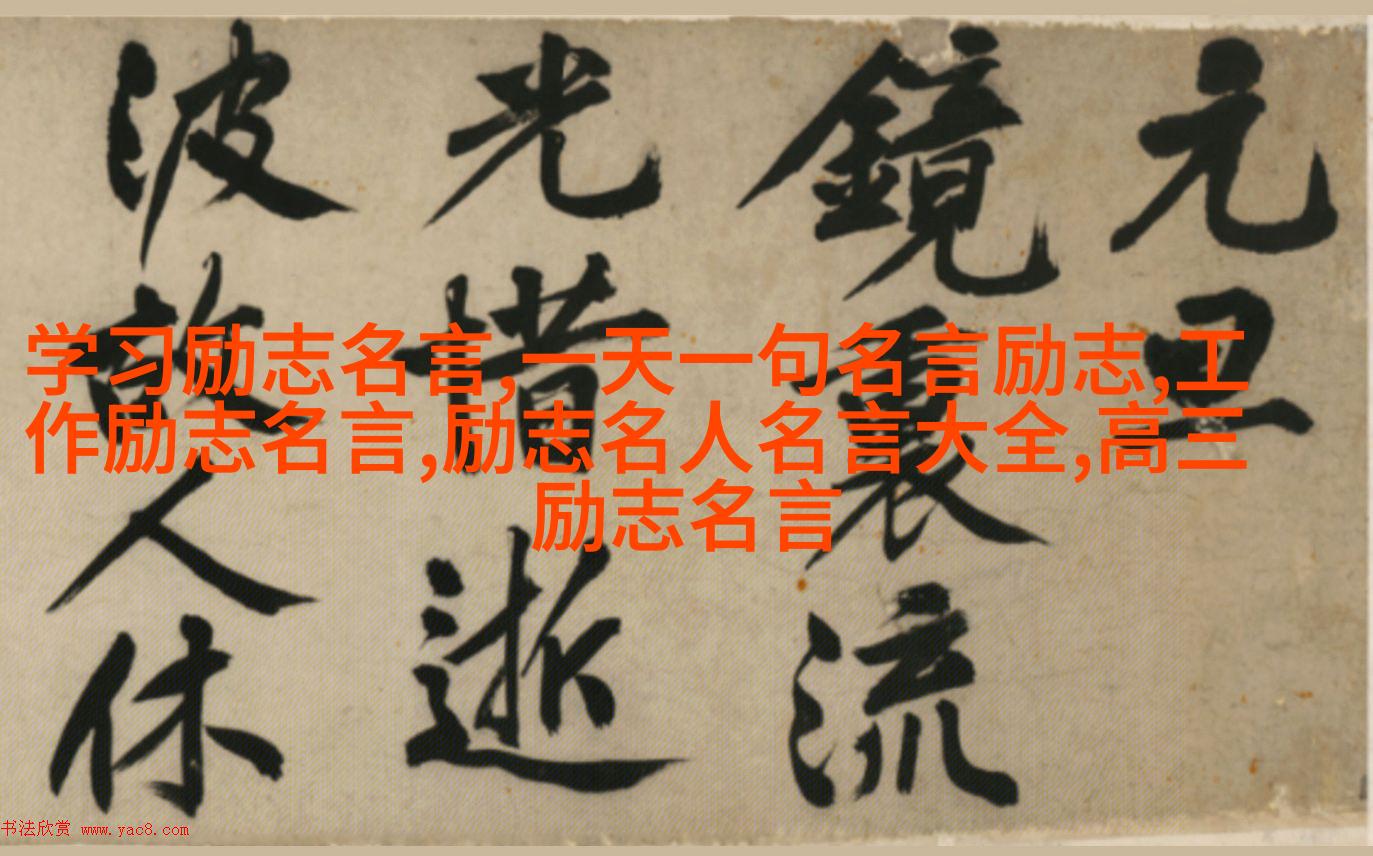 元卫
鏡裏流
光惜逝
波故人休
学习励志名言,一天一句名言励志,工
作励志名言,励志名人名言大全,高三
励志名言
书法欣赏 www.yac8.com